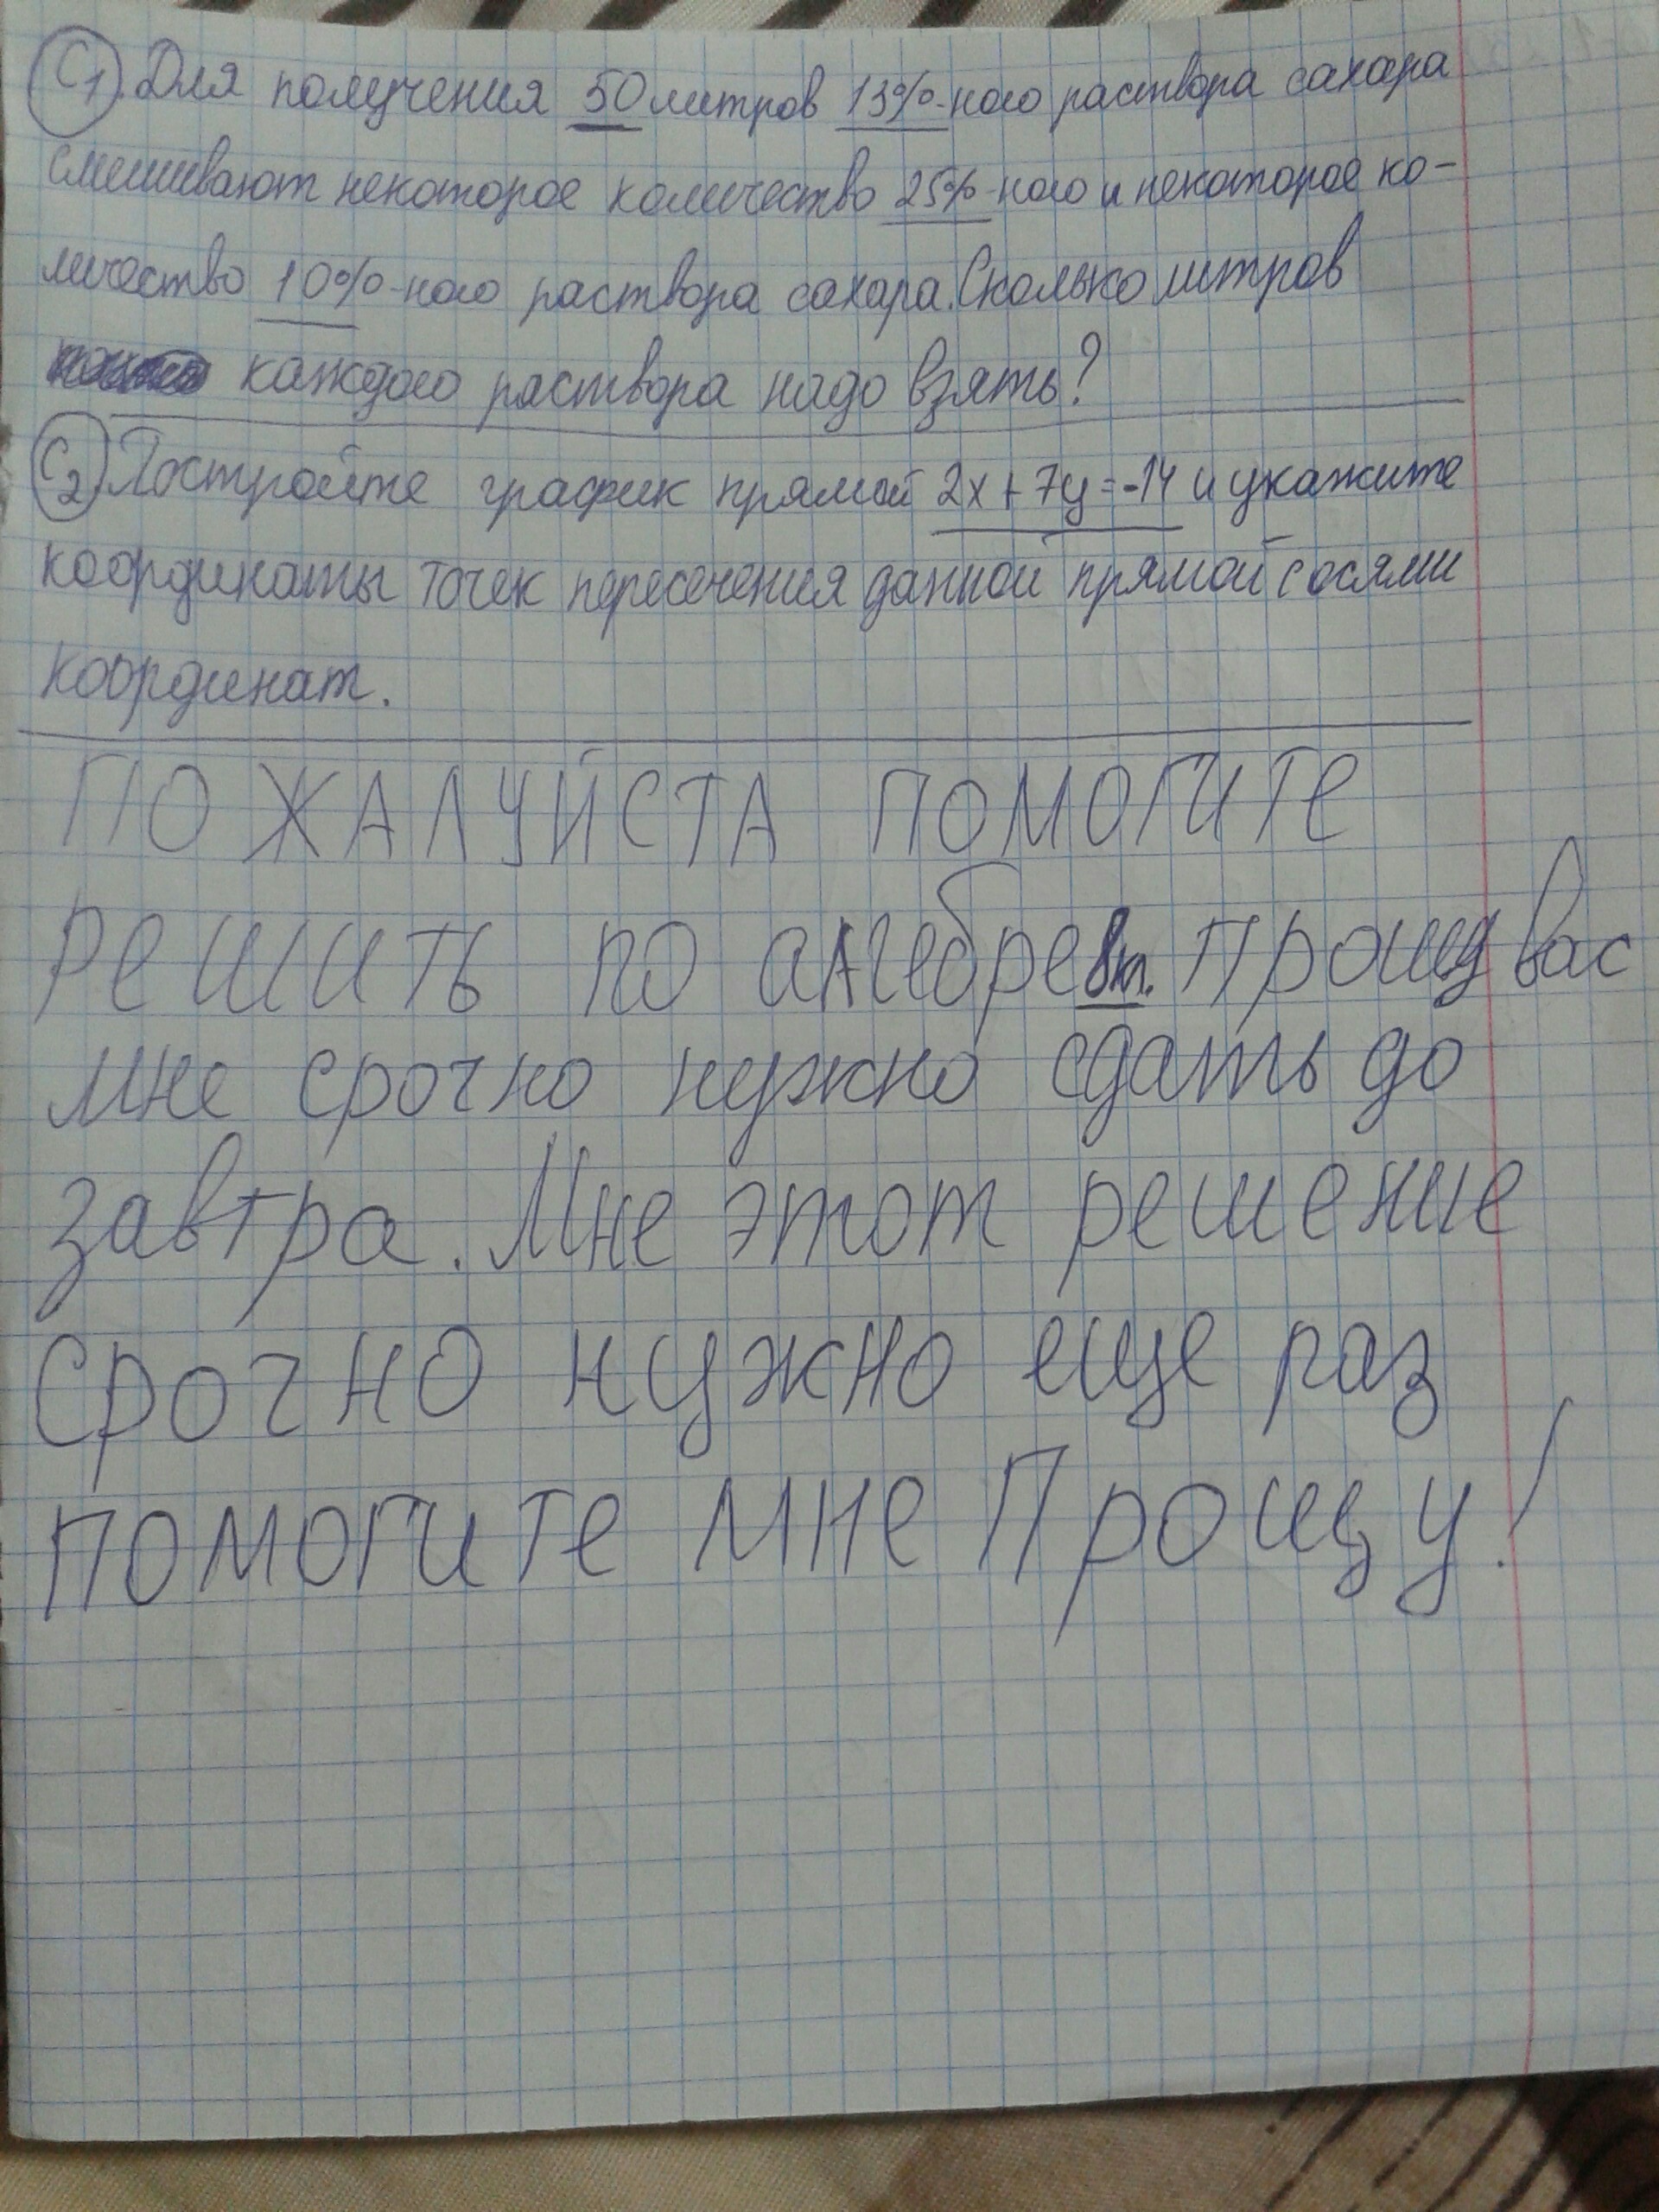 С1. Для получения 50 литров 13%-ного раствора сахара
смешивают некоторое количество 25%-ного и некоторое ко-
личество 10%-ного раствора сахара. Сколько литров
каждого раствора надо взять?
С2 Постройте график прямой 2x+7y=-14 и укажите
координаты точек пересечения данной прямой с осями
координат.
ПОЖАЛУЙСТА ПОМОГИТЕ
РЕШИТЬ ПО алгебре 8кл. Прощу вас
мне срочно нужно сдать до
завтра. Мне этот решение
срочно нужно еще раз
помогите мне Прощу!